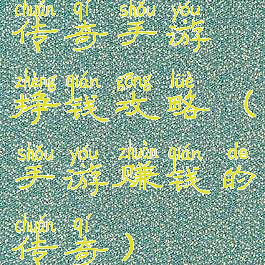 chuán qí shǒu yóu
传奇手游
zhèng qián gōng lüè
挣钱攻略（
shǒu yóu zhuàn qián de
手游赚钱的
chuán qí
传奇）